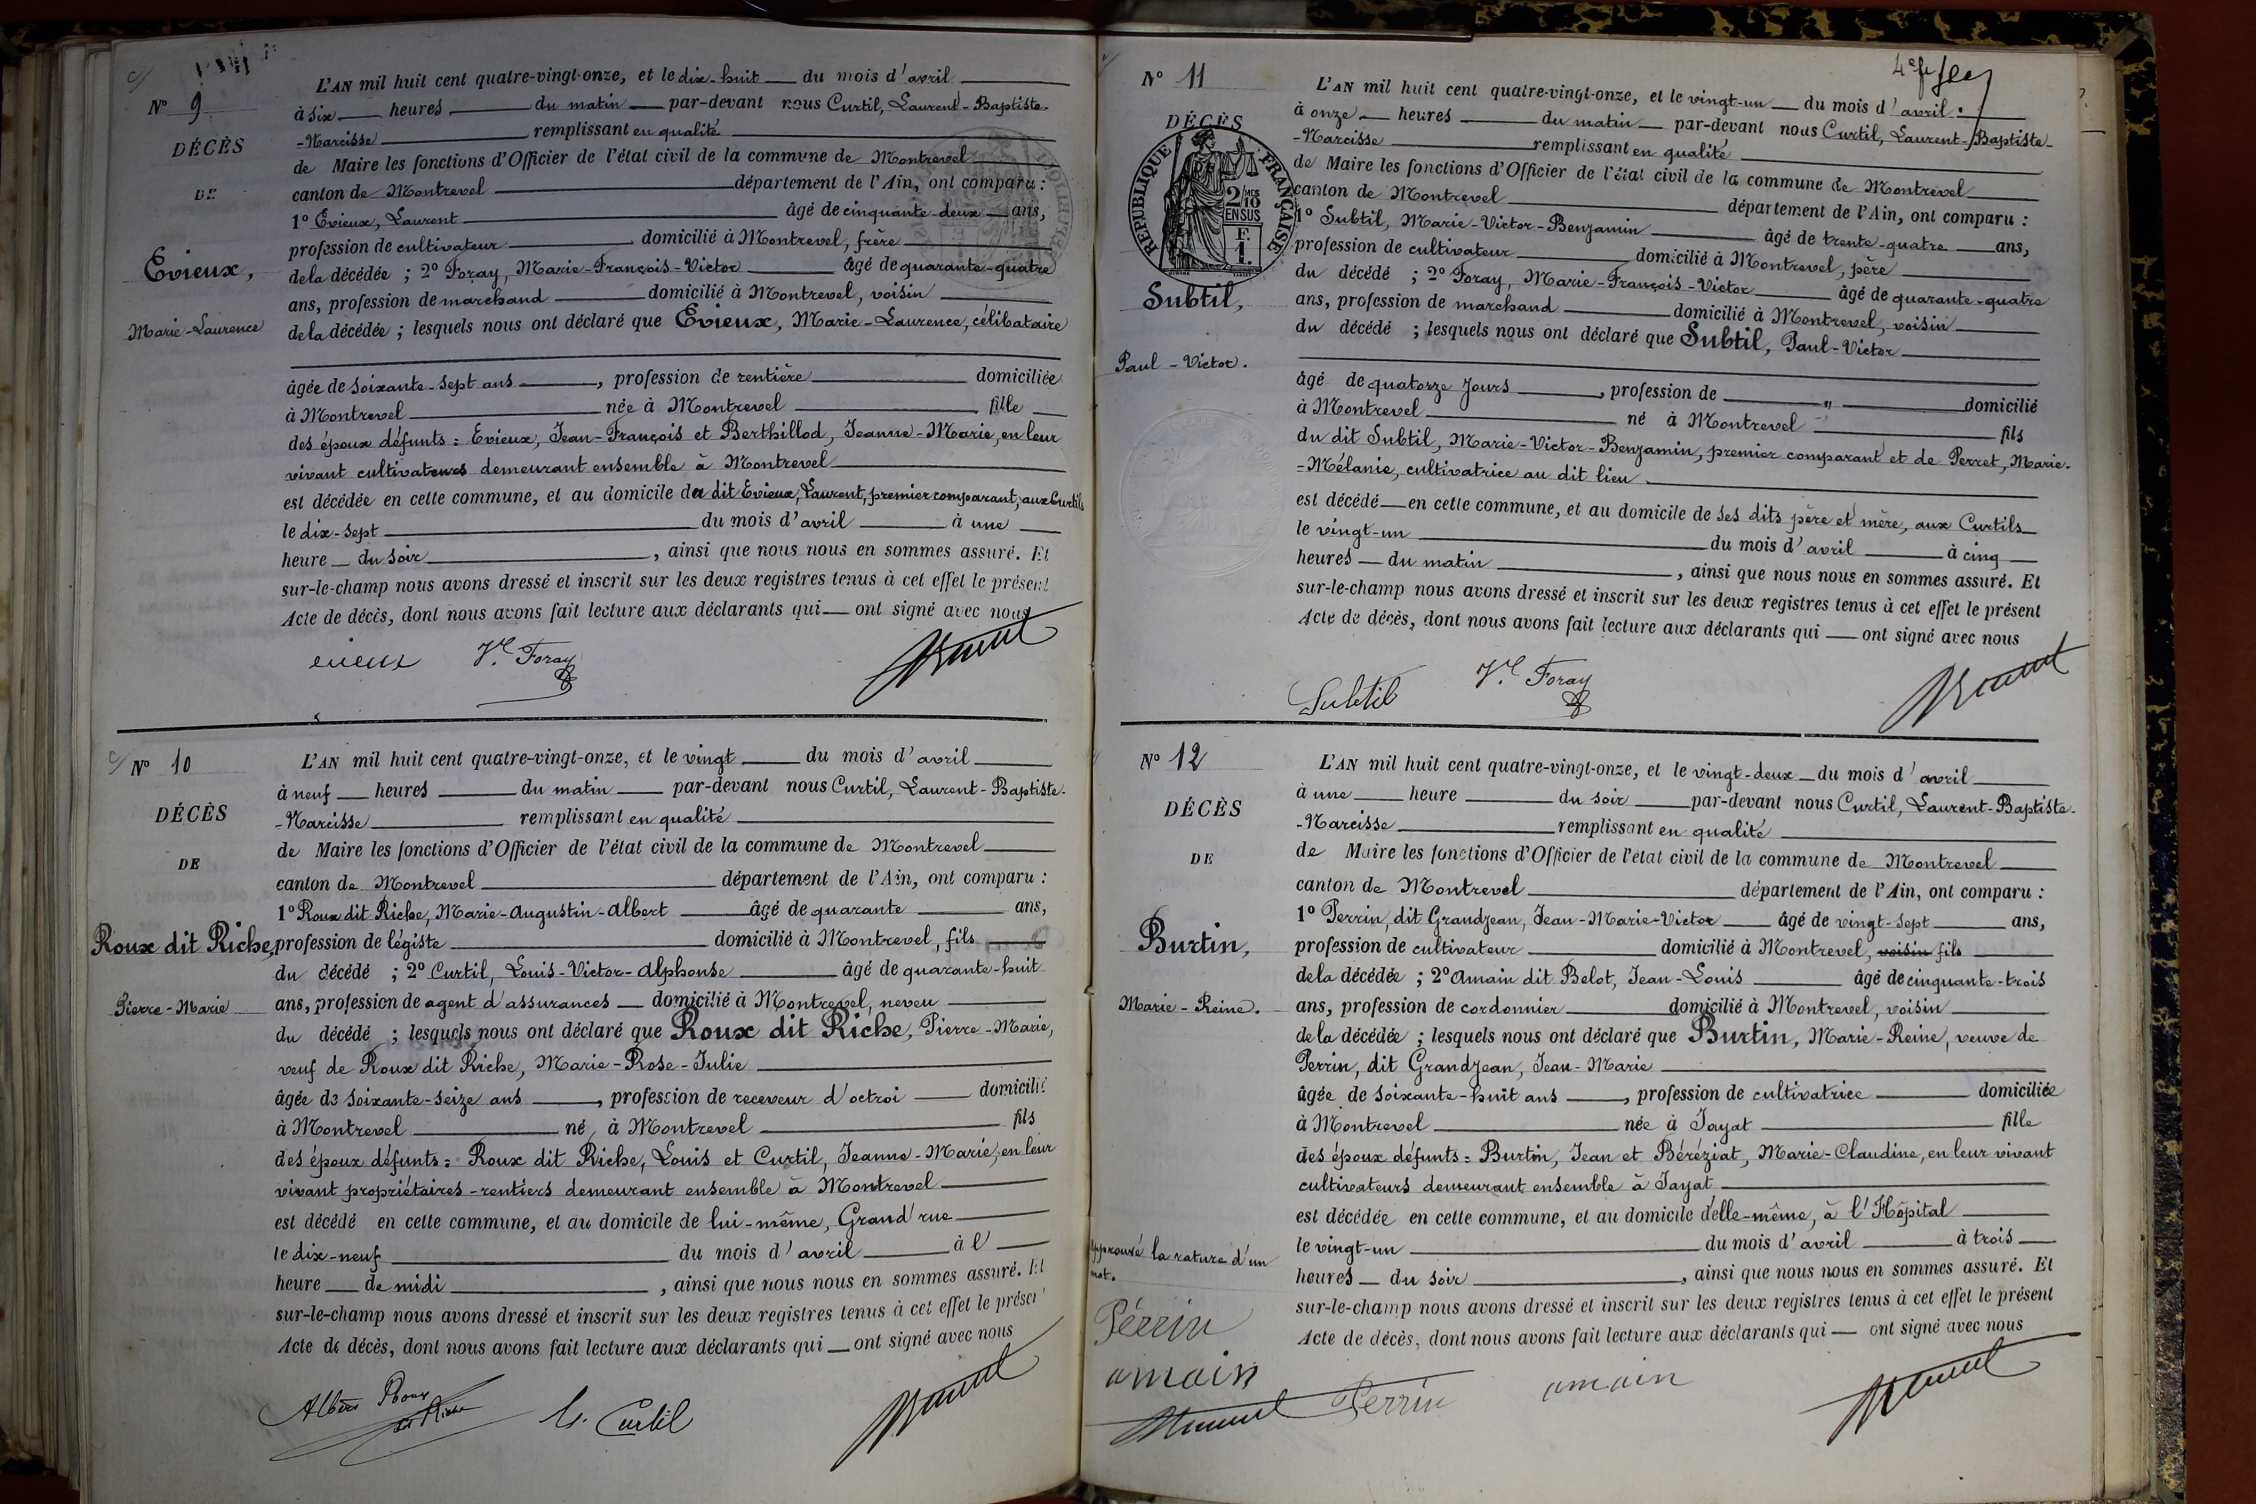 N° 9
DÉCÈS
DE
Evieux,
Marie-Laurence
L'AN mil huit cent quatre-vingt-onze, et le dix-huit du mois d'avril
à six heures du matin par-devant nous Curtil, Laurent-Baptiste-
-Narcisse remplissant en qualité
de Maire les fonctions d'Officier de l'état civil de la commune de Montrevel
canton de Montrevel département de l'Ain, ont comparu :
1° Evieux, Laurent âgé de cinquante-deux ans,
profession de cultivateur domicilié à Montrevel, frère
de la décédée ; 2° Foray, Marie-François-Victor âgé de quarante-quatre
ans, profession de marchand domicilié à Montrevel, voisin
de la décédée ; lesquels nous ont déclaré que Evieux, Marie-Laurence, célibataire
âgée de soixante-sept ans, profession de rentière domiciliée
à Montrevel née à Montrevel fille
des époux défunts : Evieux, Jean-François et Berthillod, Jeanne-Marie, en leur
vivant cultivateurs demeurant ensemble à Montrevel
est décédée en cette commune, et au domicile du dit Evieux, Laurent, premier comparant, aux Curtils
le dix-sept du mois d'avril à une
heure du soir, ainsi que nous nous en sommes assuré. Et
sur-le-champ nous avons dressé et inscrit sur les deux registres tenus à cet effet le présent
Acte de décès, dont nous avons fait lecture aux déclarants qui ont signé avec nous
evieux Vr Foray
N° 10
DÉCÈS
DE
Roux dit Riche,
Pierre-Marie
L'AN mil huit cent quatre-vingt-onze, et le vingt du mois d'avril
à neuf heures du matin par-devant nous Curtil, Laurent-Baptiste-
-Narcisse remplissant en qualité
de Maire les fonctions d'Officier de l'état civil de la commune de Montrevel
canton de Montrevel département de l'Ain, ont comparu :
1° Roux dit Riche, Marie-Augustin-Albert âgé de quarante ans,
profession de légiste domicilié à Montrevel, fils
du décédé ; 2° Curtil, Louis-Victor-Alphonse âgé de quarante-huit
ans, profession de agent d'assurances domicilié à Montrevel, neveu
du décédé ; lesquels nous ont déclaré que Roux dit Riche, Pierre-Marie,
veuf de Roux dit Riche, Marie-Rose-Julie
âgée de soixante-seize ans, profession de receveur d'octroi domicilié
à Montrevel né à Montrevel fils
des époux défunts : Roux dit Riche, Louis et Curtil, Jeanne-Marie, en leur
vivant propriétaires-rentiers demeurant ensemble à Montrevel
est décédé en cette commune, et au domicile de lui-même, Grand'rue
le dix-neuf du mois d'avril à l'
heure de midi, ainsi que nous nous en sommes assuré. Et
sur-le-champ nous avons dressé et inscrit sur les deux registres tenus à cet effet le présen
Acte de décès, dont nous avons fait lecture aux déclarants qui ont signé avec nous
Albert Roux
dit Riche
Curtil
N° 11
DÉCÈS
RÉPUBLIQUE FRANÇAISE
2/10
EN SUS
F.
1.
Subtil,
Paul-Victor.
L'AN mil huit cent quatre-vingt-onze, et le vingt-un du mois d'avril
à onze heures du matin par-devant nous Curtil, Laurent-Baptiste-
-Narcisse remplissant en qualité
de Maire les fonctions d'Officier de l'état civil de la commune de Montrevel
canton de Montrevel département de l'Ain, ont comparu :
1° Subtil, Marie-Victor-Benjamin âgé de trente-quatre ans,
profession de cultivateur domicilié à Montrevel, père
du décédé ; 2° Foray, Marie-François-Victor âgé de quarante-quatre
ans, profession de marchand domicilié à Montrevel, voisin
du décédé ; lesquels nous ont déclaré que Subtil, Paul-Victor
âgé de quatorze jours, profession de " domicilié
à Montrevel né à Montrevel fils
du dit Subtil, Marie-Victor-Benjamin, premier comparant et de Perret, Marie-
-Mélanie, cultivatrice au dit lieu
est décédé en cette commune, et au domicile de ses dits père et mère, aux Curtils
le vingt-un du mois d'avril à cinq
heures du matin, ainsi que nous nous en sommes assuré. Et
sur-le-champ nous avons dressé et inscrit sur les deux registres tenus à cet effet le présent
Acte de décès, dont nous avons fait lecture aux déclarants qui ont signé avec nous
Subtil Vr Foray
N° 12
DÉCÈS
DE
Burtin,
Marie-Reine.
L'AN mil huit cent quatre-vingt-onze, et le vingt-deux du mois d'avril
à une heure du soir par-devant nous Curtil, Laurent-Baptiste-
-Narcisse remplissant en qualité
de Maire les fonctions d'Officier de l'état civil de la commune de Montrevel
canton de Montrevel département de l'Ain, ont comparu :
1° Perrin, dit Grandjean, Jean-Marie-Victor âgé de vingt-sept ans,
profession de cultivateur domicilié à Montrevel, voisin fils
de la décédée ; 2° Amain dit Belot, Jean-Louis âgé de cinquante-trois
ans, profession de cordonnier domicilié à Montrevel, voisin
de la décédée ; lesquels nous ont déclaré que Burtin, Marie-Reine, veuve de
Perrin, dit Grandjean, Jean-Marie
âgée de soixante-huit ans, profession de cultivatrice domiciliée
à Montrevel née à Jayat fille
des époux défunts : Burtin, Jean et Béréziat, Marie-Claudine, en leur vivant
cultivateurs demeurant ensemble à Jayat
est décédée en cette commune, et au domicile d'elle-même, à l'Hôpital
le vingt-un du mois d'avril à trois
heures du soir, ainsi que nous nous en sommes assuré. Et
sur-le-champ nous avons dressé et inscrit sur les deux registres tenus à cet effet le présent
Acte de décès, dont nous avons fait lecture aux déclarants qui ont signé avec nous
Approuvé la rature d'un
mot.
Perrin
amain
Perrin amain